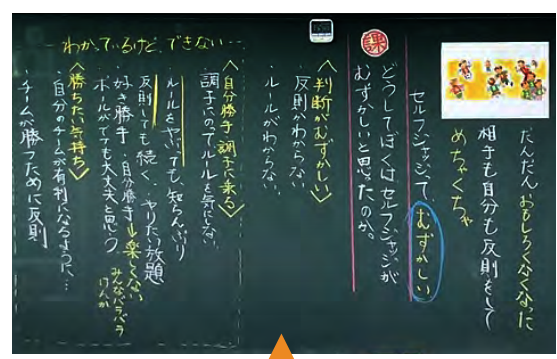 だんだんおもしろくなくなった
相手も自分も反則をして
めちゃくちゃ
セルフジャッジって、むずかしい
課
どうしてぼくはセルフジャッジが
むずかしいと思ったのか。
〈判断がむずかしい〉
・反則かわからない
・ルールがわからない。
わかっているけど、できない
〈自分勝手・調子に乗る〉
調子にのってルールを気にしない。
・ルールをやぶっても、知らんぷり
反則しても続く、やりたい放題
好き勝手・自分勝手→楽しくない
みんなバラバラ
けんか
ボールがでても大丈夫と思う
〈勝ちたい気持ち〉
・自分のチームが有利になるように…
・チームが勝つために反則